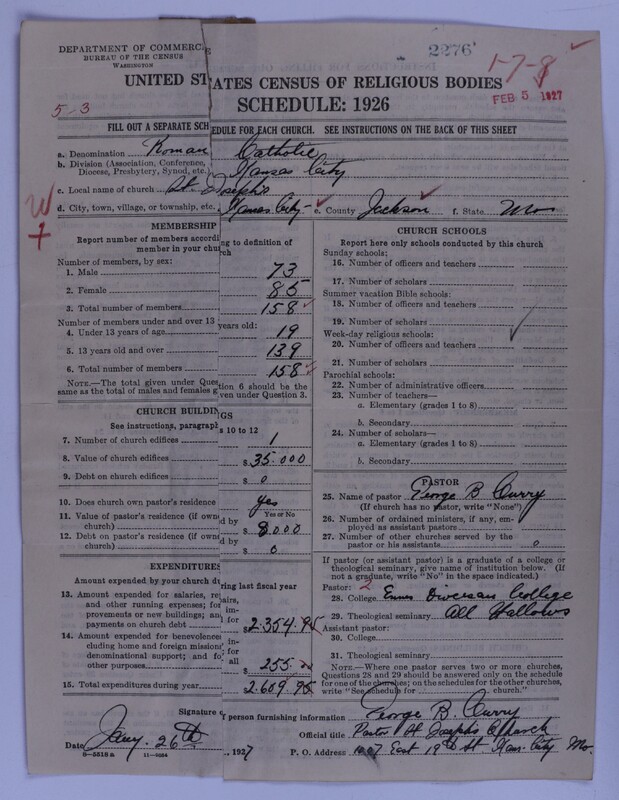 DEPARTMENT OF COMMERCE
BUREAU OF THE CENSUS
WASHINGTON
2276
1-7-8
UNITED STATES CENSUS OF RELIGIOUS BODIES
FEB 5 1927
SCHEDULE: 1926
5-3
FILL OUT A SEPARATE SCHEDULE FOR EACH CHURCH. SEE INSTRUCTIONS ON THE BACK OF THIS SHEET
a. Denomination Roman Catholic
b. Division (Association, Conference, Diocese, Presbytery, Synod, etc.) Kansas City
c. Local name of church St. Joseph's
d. City, town, village, or township, etc. Kansas City - e. County Jackson f. State Mo
MEMBERSHIP
Report number of members according to definition of
member in your church
Number of members, by sex:
1. Male 73
2. Female 85
3. Total number of members 158
Number of members under and over 13 years old:
4. Under 13 years of age 19
5. 13 years old and over 139
6. Total number of members 158
NOTE.—The total given under Question 6 should be the
same as the total of males and females given under Question 3.
CHURCH BUILDINGS
See instructions, paragraphs 10 to 12
7. Number of church edifices 1
8. Value of church edifices $ 35.000
9. Debt on church edifices $ 0
10. Does church own pastor's residence yes
Yes or No
11. Value of pastor's residence (if owned by
church) $ 8.000
12. Debt on pastor's residence (if owned by
church) $ 0
EXPENDITURES
Amount expended by your church during last fiscal year
13. Amount expended for salaries, repairs,
and other running expenses; for im-
provements or new buildings; and for
payments on church debt $ 2.354.95
14. Amount expended for benevolences, in-
cluding home and foreign missions; for
denominational support; and for all
other purposes $ 255.
15. Total expenditures during year $ 2.609.95
CHURCH SCHOOLS
Report here only schools conducted by this church
Sunday schools:
16. Number of officers and teachers
17. Number of scholars
Summer vacation Bible schools:
18. Number of officers and teachers
19. Number of scholars
Week-day religious schools:
20. Number of officers and teachers
21. Number of scholars
Parochial schools:
22. Number of administrative officers
23. Number of teachers—
a. Elementary (grades 1 to 8)
b. Secondary
24. Number of scholars—
a. Elementary (grades 1 to 8)
b. Secondary
PASTOR
25. Name of pastor George B Curry
(If church has no pastor, write "None")
26. Number of ordained ministers, if any, em-
ployed as assistant pastors
27. Number of other churches served by the
pastor or his assistants 0
If pastor (or assistant pastor) is a graduate of a college or
theological seminary, give name of institution below. (If
not a graduate, write "No" in the space indicated.)
Pastor: 2
28. College Ennis Diocesan College
29. Theological seminary All Hallows
Assistant pastor:
30. College
31. Theological seminary
NOTE.—Where one pastor serves two or more churches,
Questions 28 and 29 should be answered only on the schedule
for one of the churches; on the schedules for the other churches,
write "See schedule for church."
Signature of person furnishing information George B. Curry
Official title Pastor St Joseph's Church
Date Jany. 26th, 1927 P. O. Address East 19th St Kans. City Mo.
8-5518a 11-9064